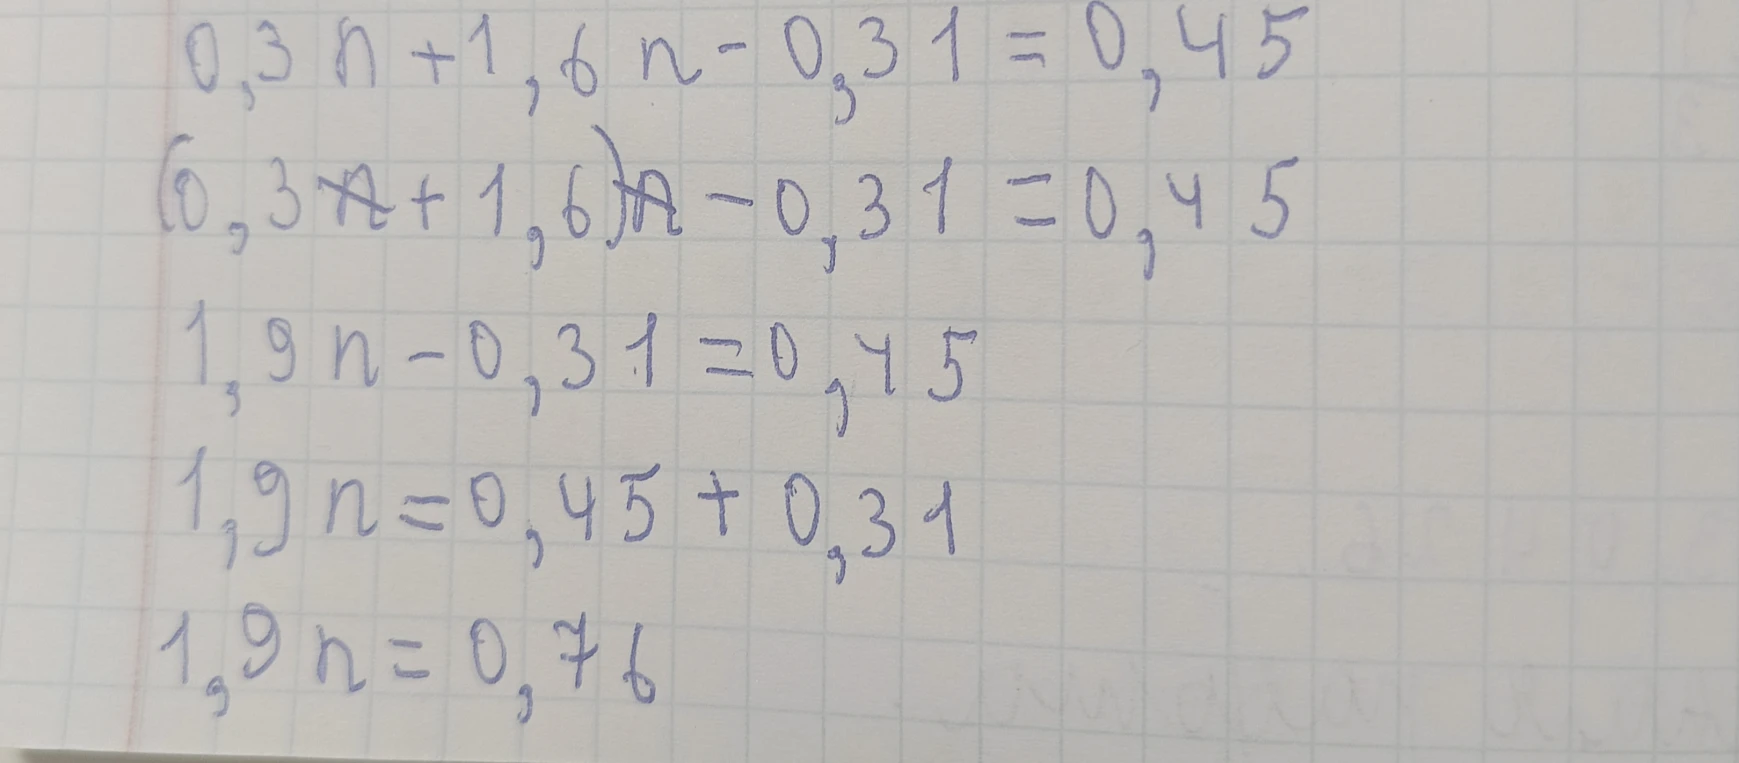 0,3n+1,6n-0,31=0,45
(0,3n+1,6)n-0,31=0,45
1,9n-0,31=0,45
1,9n=0,45+0,31
1,9n=0,76